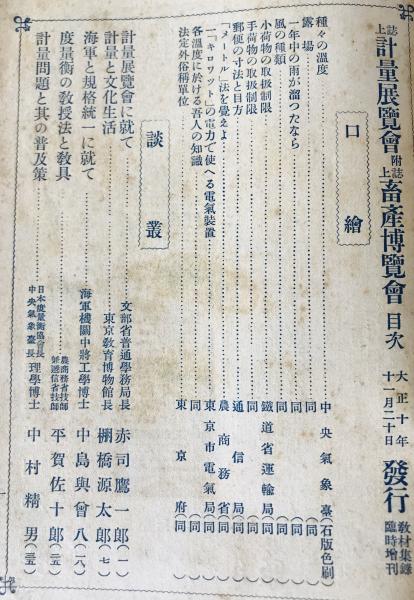 誌上計量展覽會附誌上畜產博覽會目次 大正十年十一月二十日發行 敎材集錄臨時增刊
口繪
種々の溫度……中央氣象臺(石版色刷)
露場……同(同)
一年中の雨が溜つたなら……同(同)
風の種類……同(同)
小荷物の取扱制限……鐵道省運輸局(同)
手荷物の取扱制限……同(同)
郵便の寸法と目方……通信局(同)
「メートル」法を覺えよ……農商務省(同)
一「キロワット」の電力で使へる電氣裝置……東京市電氣局(同)
各溫度に於ける吾人の知識……同(同)
法定外俗稱單位……東京府(同)
談叢
計量展覽會に就て……文部省普通學務局長 赤司鷹一郞(一)
計量と文化生活……東京敎育博物館長 棚橋源太郞(七)
海軍と規格統一に就て……海軍機關中將工學博士 中島與曾八(一八)
度量衡の敎授法と敎具……農商務省技師兼遞信省技師 平賀佐十郞(二五)
計量問題と其の普及策……日本度量衡協會長中央氣象臺長 理學博士 中村精男(三五)